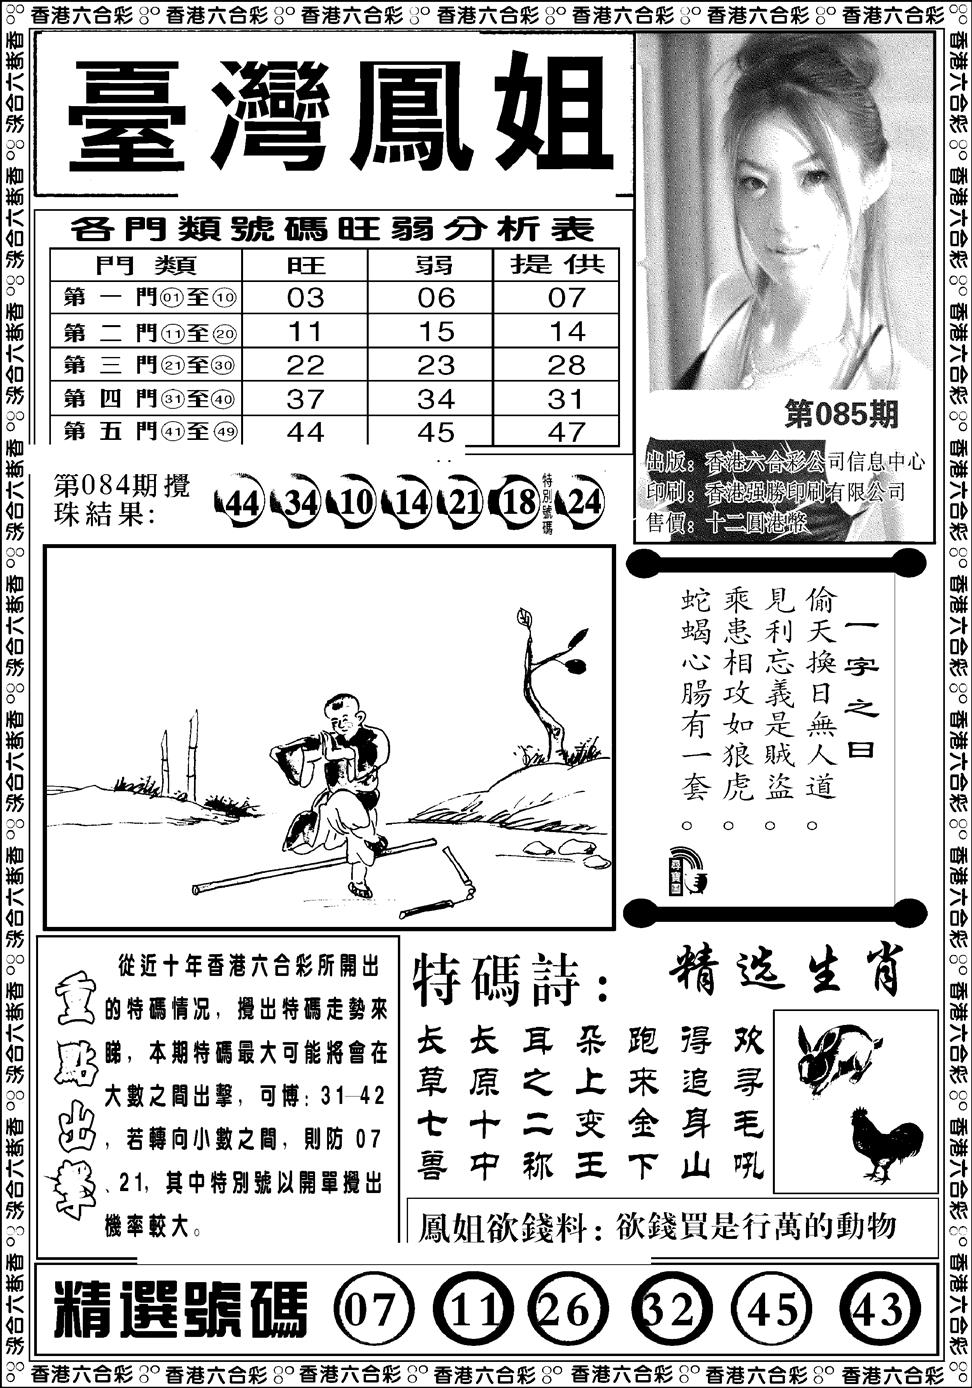 香港六合彩 香港六合彩 香港六合彩 香港六合彩 香港六合彩 香港六合彩 香港六合彩
臺灣鳳姐
各門類號碼旺弱分析表
門類 旺 弱 提供
第一門01至10 03 06 07
第二門11至20 11 15 14
第三門21至30 22 23 28
第四門31至40 37 34 31
第五門41至49 44 45 47
第084期攪
珠結果:
44 34 10 14 21 18 特別號碼 24
第085期
出版：香港六合彩公司信息中心
印刷：香港强勝印刷有限公司
售價：十二圓港幣
一字之曰
偷天換日無人道。
見利忘義是賊盜。
乘患相攻如狼虎。
蛇蝎心腸有一套。
尋寶圖
重點出擊
從近十年香港六合彩所開出
的特碼情況，攪出特碼走勢來
睇，本期特碼最大可能將會在
大數之間出擊，可博：31—42
，若轉向小數之間，則防 07
、21，其中特別號以開單攪出
機率較大。
特碼詩：
长长耳朵跑得欢
草原之上来追寻
七十二变金身毛
兽中称王下山吼
精选生肖
鳳姐欲錢料：欲錢買是行萬的動物
精選號碼 07 11 26 32 45 43
香港六合彩 香港六合彩 香港六合彩 香港六合彩 香港六合彩 香港六合彩 香港六合彩